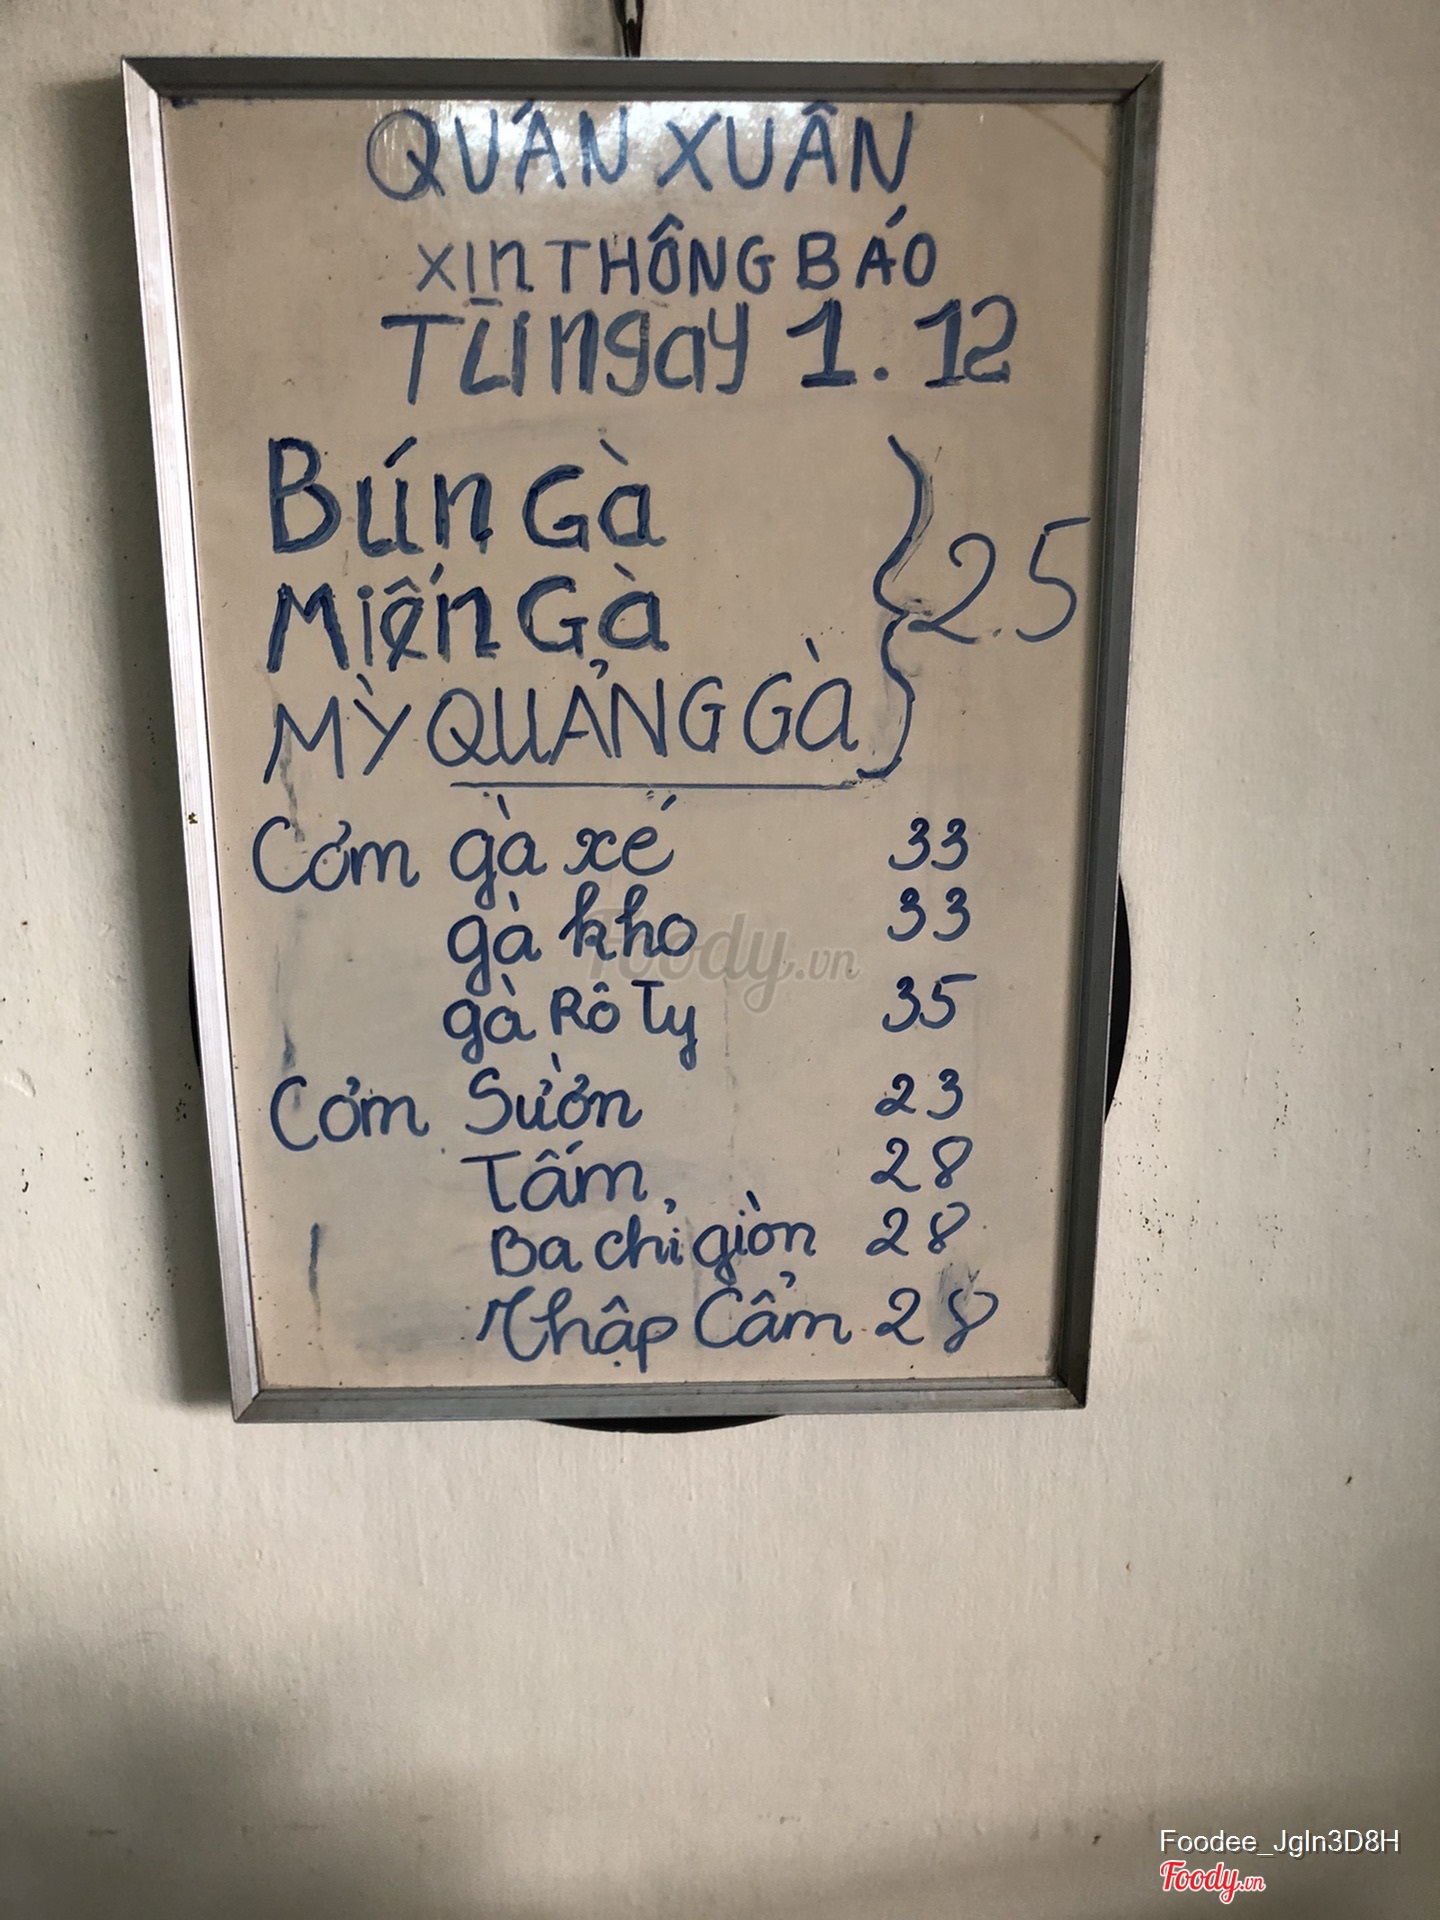 QUÁN XUÂN
XIN THÔNG BÁO
Từ ngày 1.12
Bún Gà
Miến Gà
MỲ QUẢNG GÀ } 25
Cơm gà xé 33
gà kho 33
gà Rô Ty 35
Cơm Sườn 23
Tấm 28
Ba chỉ giòn 28
Thập Cẩm 28
Foody.vn
Foodee_Jgln3D8H
Foody.vn